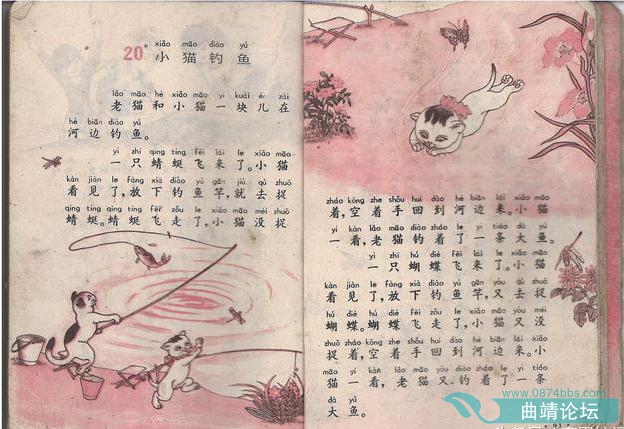 20* 小猫钓鱼
xiǎo māo diào yú
lǎo māo hé xiǎo māo yí kuàir zài
老猫和小猫一块儿在
hé biān diào yú
河边钓鱼。
yì zhī qīng tíng fēi lái le xiǎo māo
一只蜻蜓飞来了。小猫
kàn jiàn le fàng xià diào yú gān jiù qù zhuō
看见了,放下钓鱼竿,就去捉
qīng tíng qīng tíng fēi zǒu le xiǎo māo méi zhuō
蜻蜓。蜻蜓飞走了,小猫没捉
zháo kōng zhe shǒu huí dào hé biān lái xiǎo māo
着,空着手回到河边来。小猫
yí kàn lǎo māo diào zháo le yì tiáo dà yú
一看,老猫钓着了一条大鱼。
yì zhī hú dié fēi lái le xiǎo māo
一只蝴蝶飞来了。小猫
kàn jiàn le fàng xià diào yú gān yòu qù zhuō
看见了,放下钓鱼竿,又去捉
hú dié hú dié fēi zǒu le xiǎo māo yòu méi
蝴蝶。蝴蝶飞走了,小猫又没
zhuō zháo kōng zhe shǒu huí dào hé biān lái xiǎo
捉着,空着手回到河边来。小
māo yí kàn lǎo māo yòu diào zháo le yì tiáo
猫一看,老猫又钓着了一条
dà yú
大鱼。
www.0874bbs.com
曲靖论坛